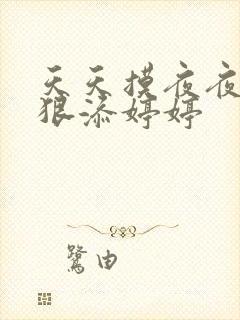 天天摸夜夜
狠添婷婷
鹭由